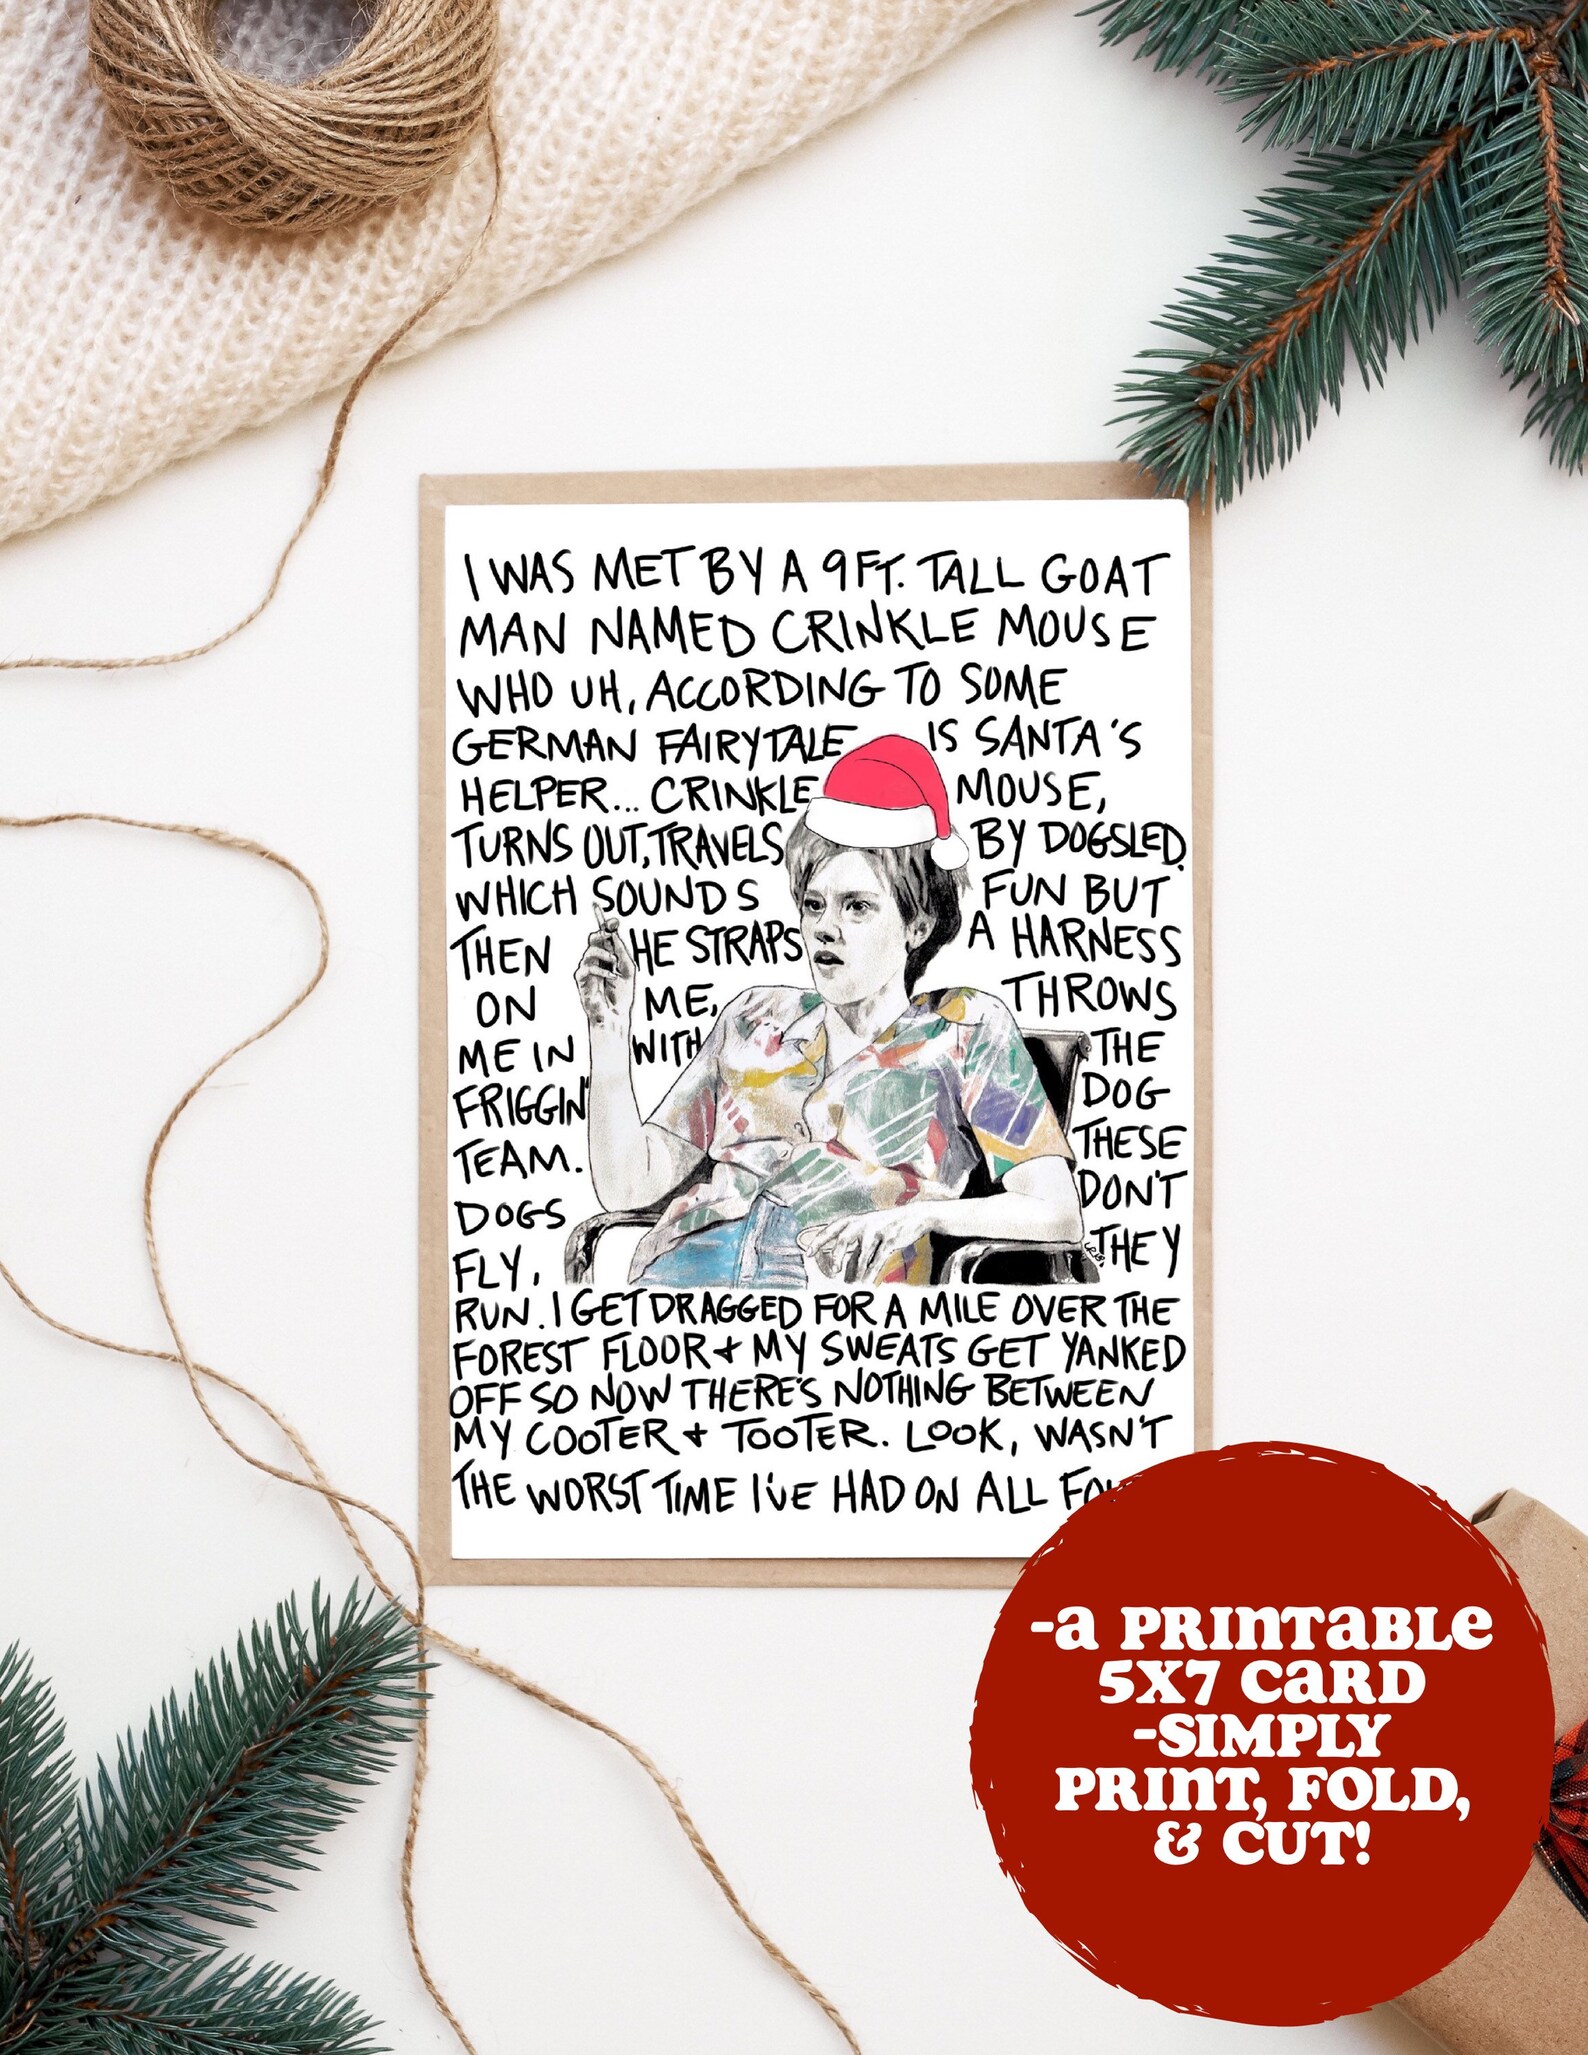 I WAS MET BY A 9FT. TALL GOAT
MAN NAMED CRINKLE MOUSE
WHO UH, ACCORDING TO SOME
GERMAN FAIRYTALE IS SANTA'S
HELPER... CRINKLE MOUSE,
TURNS OUT, TRAVELS BY DOGSLED.
WHICH SOUNDS FUN BUT
THEN HE STRAPS A HARNESS
ON ME, THROWS
ME IN WITH THE
FRIGGIN' DOG
TEAM. THESE
DOGS DON'T
FLY, THEY
RUN. I GET DRAGGED FOR A MILE OVER THE
FOREST FLOOR + MY SWEATS GET YANKED
OFF SO NOW THERE'S NOTHING BETWEEN
MY COOTER + TOOTER. LOOK, WASN'T
THE WORST TIME I'VE HAD ON ALL
-a PRINTABLE
5X7 CARD
-SIMPLY
PRINT, FOLD,
& CUT!